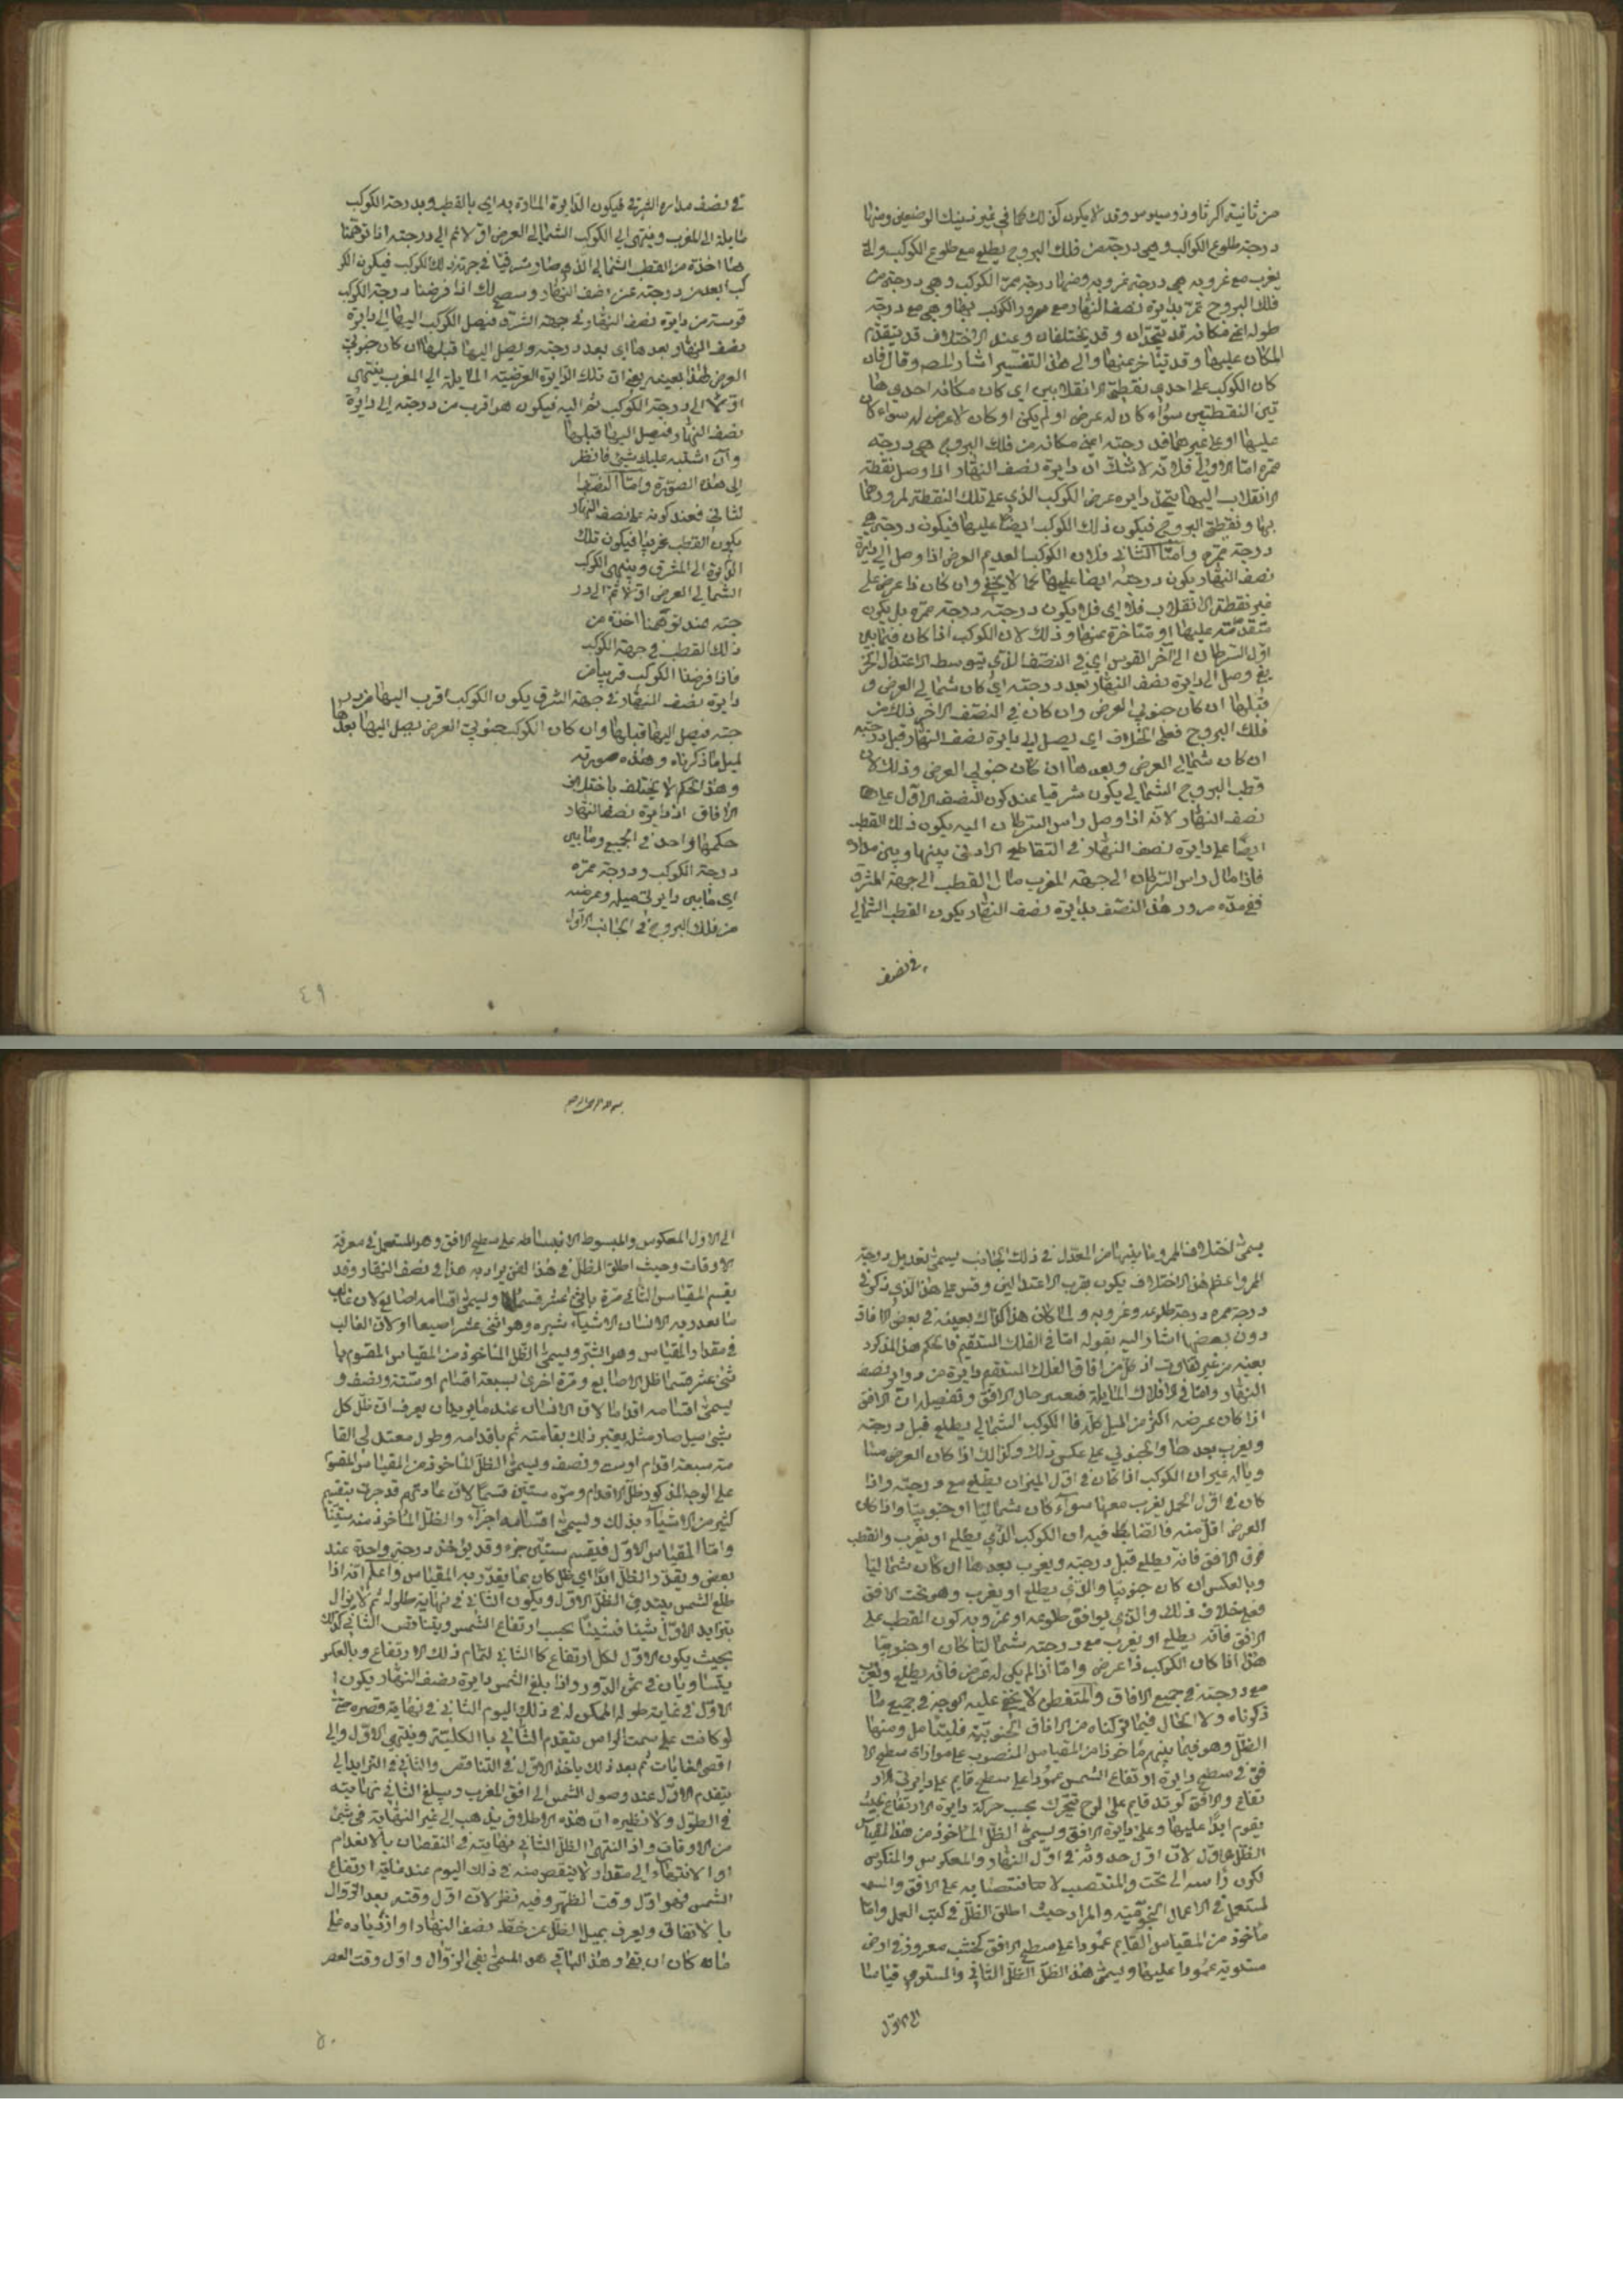 من ثانية اكر ثاوذوسيوس وقد لا يكون كذلك كما في غير ذينك الوضعين ومنها
درجة طلوع الكواكب وهي درجة من فلك البروج يطلع مع طلوع الكوكب والتي
يغرب مع غروبه هي درجة غروبه ومنها درجة ممر الكوكب وهي درجة من
فلك البروج تمر بدايرة نصف النهار مع مرور الكوكب بها وهي مع درجة
طوله اعني مكانه قد يتحدان وقد يختلفان وعند الاختلاف قد يتقدم
المكان عليها وقد يتاخر عنها والى هذا التفسير اشار المصه وقال فان
كان الكوكب على احدى نقطتي الانقلابين اي كان مكانه احدى ها
تين النقطتين سواء كان له عرض او لم يكن او كان لا عرض له سواء كان
عليها او على غيرهما فدرجته اعني مكانه من فلك البروج هي درجة
ممره اما الاولى فلانه لا شك ان دايرة نصف النهار اذا وصل نقطة
الانقلاب اليها يتحد دايرة عرض الكوكب الذي على تلك النقطة لمرورهما
بها ونقطتي البروج فيكون ذلك الكوكب ايضا عليها فيكون درجته هي
درجة ممره واما الثاني فلان الكوكب العديم العرض اذا وصل الى دايرة
نصف النهار يكون درجته ايضا عليها كما لا يخفى وان كان ذا عرض على
غير نقطة الانقلاب فلا اي فلا يكون درجته درجة ممره بل يكون
متقدمة عليها او متاخرة عنها وذلك لان الكوكب اذا كان فيما بين
اول السرطان الى آخر القوس اي في النصف الذي يتوسطه الاعتدال الخر
يفي وصل الى دايرة نصف النهار بعد درجته اي كان شمالي العرض و
قبلها ان كان جنوبي العرض وان كان في النصف الآخر فذلك من
فلك البروج فعلى الخلاف اي يصل الى دايرة نصف النهار قبل درجته
ان كان شمالي العرض وبعدها ان كان جنوبي العرض وذلك لان
قطب البروج الشمالي يكون شرقيا عند كون النصف الاول على
نصف النهار لانه اذا وصل راس السرطان اليه يكون ذلك القطب
ايضا على دايرة نصف النهار في التقاطع الادنى بينها وبين مداره
فاذا مال راس السرطان الى جهة المغرب مال القطب الى جهة المشرق
ففي مدة مرور هذا النصف بدايرة نصف النهار يكون القطب الشمالي
في نصف
في نصف مداره الشرقي فيكون الدايرة المارة به اي بالقطب وبدرجة الكوكب
مايلة الى المغرب وينتهي الى الكوكب الشمالي العرض اولا ثم الى درجته اذا توهمنا
ها آخذة من القطب الشمالي الذي صار شرقيا في جهة ذلك الكوكب فيكون الكو
كب ابعد من درجته عن نصف النهار وسصح لك اذا فرضنا درجة الكوكب
قريبة من دايرة نصف النهار في جهة الشرق فيصل الكوكب اليها الى دايرة
نصف النهار بعدها اي بعد درجته ويصل اليها قبلها ان كان جنوبي
العرض لهذا بعينه يعني ان تلك الدايرة العرضية المايلة الى المغرب ينتهي
اولا الى درجة الكوكب ثم اليه فيكون هو اقرب من درجته الى دايرة
نصف النهار فيصل اليها قبلها
وان اشتبه عليك شيئ فانظر
الى هذه الصورة واما النصف
الثاني فعند كونه على نصف النهار
يكون القطب غربيا فيكون تلك
الدايرة الى المشرق وينتهي الكوكب
الشمالي العرض اولا ثم الى در
جته عند توهمنا آخذة من
ذلك القطب في جهة الكوكب
فاذا فرضنا الكوكب قريبا من
دايرة نصف النهار في جهة الشرق يكون الكوكب اقرب اليها من در
جته فيصل اليها قبلها وان كان الكوكب جنوبي العرض يصل اليها بعدها
لمثل ما ذكرناه وهذه صورته
وهذا الحكم لا يختلف باختلاف
الآفاق اذ دايرة نصف النهار
حكمها واحد في الجميع وما بين
درجة الكوكب ودرجة ممره
اي ما بين دايرتي ميله وعرضه
من فلك البروج في الجانب الاول
٤٩
يسمى اختلاف الممر وما بينهما من المعدل في ذلك الجانب يسمى تعديل درجة
الممر واعظم هذا الاختلاف يكون بقرب الاعتدالين وقس على هذا الذي ذكر في
درجة ممره درجة طلوعه وغروبه ولما كان هذا كذلك بعينه في بعض الآفاق
دون بعضها اشار اليه بقوله اما في الفلك المستقيم فالحكم هذا المذكور
بعينه من غير تفاوت اذ كل من آفاق الفلك المستقيم دايرة من دواير نصف
النهار واما في الافلاك المايلة فبحسب حال الافق وتفصيله ان الافق
اذا كان عرضه اكثر من الميل كله فالكوكب الشمالي يطلع قبل درجته
ويغرب بعدها والجنوبي على عكس ذلك وكذلك اذا كان العرض مسا
ويا له غير ان الكوكب اذا كان في اول الميزان يطلع مع درجته واذا
كان في اول الحمل يغرب معها سوآء كان شماليا او جنوبيا واذا كان
العرض اقل منه فالضابط فيه ان الكوكب الذي يطلع او يغرب والقطب
فوق الافق فانه يطلع قبل درجته ويغرب بعدها ان كان شماليا
وبالعكس ان كان جنوبيا والذي يطلع او يغرب وهو تحت الافق
فعلى خلاف ذلك والذي يوافق طلوعه او غروبه كون القطب على
الافق فانه يطلع او يغرب مع درجته شماليا كان او جنوبيا
هذا اذا كان الكوكب ذا عرض واما اذا لم يكن له عرض فانه يطلع ويغرب
مع درجته في جميع الآفاق والمتفطن لا يخفى عليه الوجه في جميع ما
ذكرناه ولا الحال فيما تركناه من الآفاق الجنوبية فليتامل ومنها
الظل وهو فيما بينهم ماخوذ من المقياس المنصوب على موازاة سطح الا
فق في سطح دايرة ارتفاع الشمس عمودا على سطح قايم على دايرتي الار
تفاع والافق كوتد قايم على لوح يتحرك بحسب حركة دايرة الارتفاع بحيث
يقوم ابدا عليها وعلى دايرة الافق ويسمى الظل الماخوذ من هذا المقياس
الظل الاول لان اول حدوثه في اول النهار والمعكوس والمنكوس
لكون راسه الى تحت والمنتصب لانتصابه على الافق
لمستعمل في الاعمال النجومية والمراد حيث اطلق الظل في كتب العمل واما
ماخوذ من المقياس القايم عمودا على سطح الافق كخشب مغروز في ارض
مستوية عمودا عليها ويسمى هذا الظل الظل الثاني والمستوي قياسا
الى الاول
الى الاول المعكوس والمبسوط لانبساطه على سطح الافق وهو المستعمل في معرفة
الاوقات وحيث اطلق الظل في هذا الفن يراد به هذا في نصف النهار وقد
يقسم المقياس الثاني مرة باثني عشر قسما ويسمى اقسامه اصابع لان غالب
ما يعدد به الانسان الاشياء شبره وهو اثنى عشر اصبعا او لان الغالب
في مقدار المقياس وهو الشبر ويسمى الظل الماخوذ من المقياس المقسوم با
ثنى عشر قسما ظل الاصابع ومرة اخرى بسبعة اقسام او ستة ونصف و
يسمى اقسامه اقداما لان الانسان عند ما يريد ان يعرف ان ظل كل
شيئ هل صار مثله يعتبر ذلك بقامته ثم باقدامه وطول معتدل القا
مة سبعة اقدام او ست ونصف ويسمى الظل الماخوذ من المقياس المقسوم
على الوجه المذكور ظل الاقدام ومرة ستين قسما لان عادتهم قد جرت بتقسيم
كثير من الاشيآء بذلك ويسمى اقسامه اجزآء والظل الماخوذ منه ستينيا
واما المقياس الاول فيقسم ستين جزء وقد يؤخذ درجة واحدة عند
بعض ويقدر الظل ابدا اي ظل كان بما يقدر به المقياس واعلم انه اذا
طلع الشمس يبتدئ الظل الاول ويكون الثاني في نهاية طوله ثم لا يزال
يتزايد الاول شيئا فشيئا بحسب ارتفاع الشمس ويتناقص الثاني كذلك
بحيث يكون الاول لكل ارتفاع كالثاني لتمام ذلك الارتفاع وبالعكس
يتساويان في ثمن الدور واذا بلغ الشمس دايرة نصف النهار يكون
الاول في غاية طوله الممكن له في ذلك اليوم الثاني في نهاية قصره حتى
لو كانت على سمت الراس ينعدم الثاني بالكلية وينتهي الاول والى
اقصى الغايات ثم بعد ذلك ياخذ الاول في التناقص والثاني في التزايد الى
ينعدم الاول عند وصول الشمس الى افق المغرب ويبلغ الثاني نهايته
في الطول ولا نظير ان هذه الاطلاق يذهب الى غير النهاية في شئ
من الاوقات واذا انتهى الظل الثاني نهايته في النقصان بالانعدام
او الانتهاء الى مقدار لا ينقص منه في ذلك اليوم عند غاية ارتفاع
الشمس فهو اول وقت الظهر وفيه نظر لان اول وقته بعد الزوال
بالاتفاق ويعرف بميل الظل عن خط نصف النهار او ازدياده على
ما كان ان بقى وهذا الباقي هو المسمى بفئ الزوال واول وقت العصر
٥٠